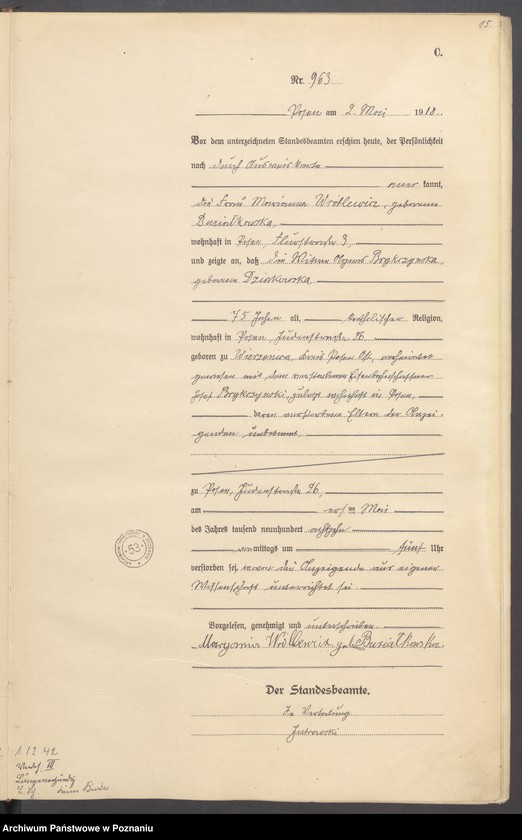 15.
C.
Nr. 963
Posen am 2. Mai 1918.
Vor dem unterzeichneten Standesbeamten erschien heute, der Persönlichkeit
nach durch Ausweiskarte
aner kannt,
die Frau Marianna Wróblewicz, geborene
wohnhaft in Posen, Flurstraße 3,
und zeigte an, daß die Witwe Agnes
geborene
75 Jahre alt, katholischer Religion,
wohnhaft in Posen, Judenstraße 26
geboren zu Wierzenica, Kreis Posen Ost, verheiratet
gewesen mit dem verstorbenen Eisenbahnschaffner
Josef zuletzt wohnhaft in Posen,
deren verstorbene Eltern der Anzei-
genden unbekannt.
zu Posen, Judenstraße 26,
am ersten Mai
des Jahres tausend neunhundert achtzehn
vormittags um fünf Uhr
verstorben sei, wovon die Anzeigende aus eigener
Wissenschaft unterrichtet sei
Vorgelesen, genehmigt und unterschrieben
geb.
Der Standesbeamte.
In Vertretung
53
1.12.42
III
Archiwum Państwowe w Poznaniu